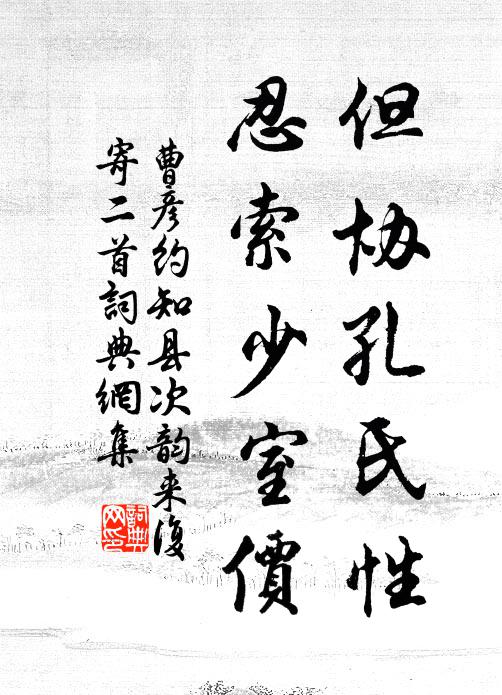 但协孔氏性
忍索少室價
曹彦约知县次韵来復
寄二首詞典網集
詞典
网印